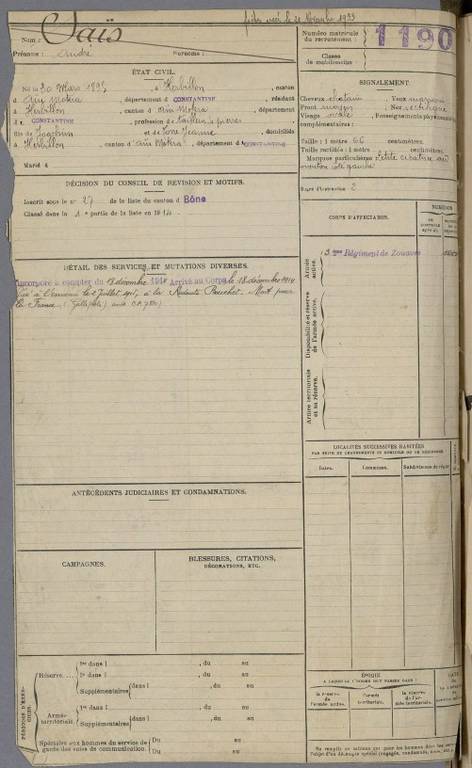 Nom : Saïs
Prénoms : André Surnoms :
Numéro matricule
du recrutement :
1190
Classe
de mobilisation
ÉTAT CIVIL.
Né le 30 Mars 1895, à Herbillon, canton
d Aïn Mokra, département d CONSTANTINE, résidant
à Herbillon, canton d Aïn Mokra, département
d CONSTANTINE, profession de tailleur de pierres
fils de Joachim et de Jeanne, domiciliés
à Herbillon, canton d Aïn Mokra, département d CONSTANTINE
Marié à
SIGNALEMENT.
Cheveux chatain Yeux marrons
Front moyen Nez rectiligne
Visage ovale Renseignements physio
complémentaires :
Taille : 1 mètre 66 centimètres.
Taille rectifiée : 1 mètre centimètres.
Marques particulières : Petite cicatrice
gauche
Degré d'instruction 2
DÉCISION DU CONSEIL DE RÉVISION ET MOTIFS.
Inscrit sous le n° 27 de la liste du canton d Bône
Classé dans la 1e partie de la liste en 191
CORPS D'AFFECTATION.
Armée
active.
3ème Régiment de Zouaves
Disponibilité et réserve
de l'armée active.
Armée territoriale
et sa réserve.
DÉTAIL DES SERVICES ET MUTATIONS DIVERSES.
Incorporé à compter du décembre 1914 Arrivé au Corps le 18 décembre 1914
Tué à l'ennemi le 2 juillet 1915, à la Redoute Bouchet. Mort pour
la France. (Gallipoli)
LOCALITÉS SUCCESSIVES HABITÉES
PAR SUITE DE CHANGEMENTS DE DOMICILE OU DE RÉSIDENCE
Dates. Communes. Subdivisions de région
ANTÉCÉDENTS JUDICIAIRES ET CONDAMNATIONS.
CAMPAGNES.
BLESSURES, CITATIONS,
DÉCORATIONS, ETC.
PÉRIODES D'EXERCICES.
Réserve
1re dans l , du au
2e dans l , du au
Supplémentaires dans l , du au
dans l , du au
Armée
territoriale
1re dans l , du au
Supplémentaires dans l , du au
dans l , du au
Spéciales aux hommes du service de
garde des voies de communication.
Du au
Du au
ÉPOQUE
À LAQUELLE L'HOMME DOIT PASSER DANS :
la réserve
de l'armée active.
l'armée
territoriale.
la réserve
de l'armée
territoriale.